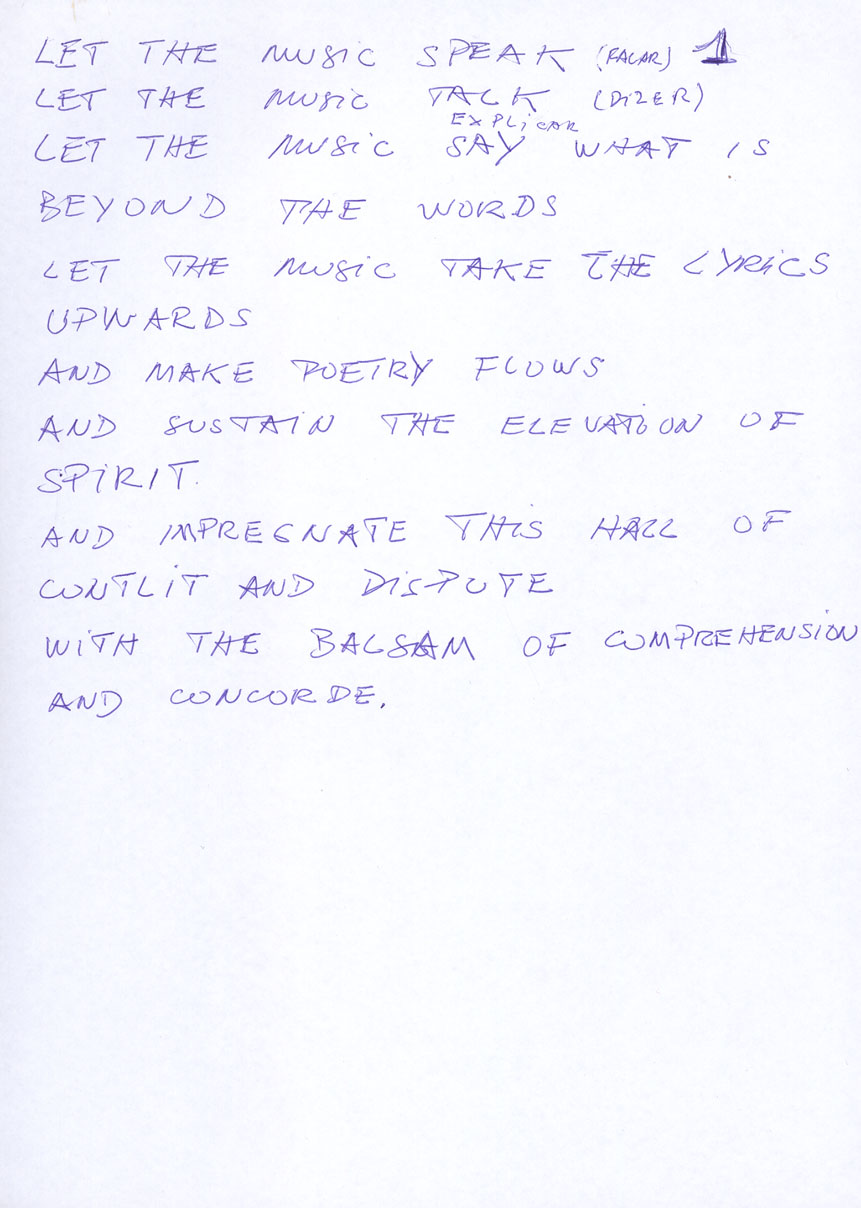 LET THE MUSIC SPEAK (FALAR) 1
LET THE MUSIC TALK (DIZER)
EXPLICAR
LET THE MUSIC SAY WHAT IS
BEYOND THE WORDS
LET THE MUSIC TAKE THE LYRICS
UPWARDS
AND MAKE POETRY FLOWS
AND SUSTAIN THE ELEVATION OF
SPIRIT.
AND IMPREGNATE THIS HALL OF
CONTLIT AND DISPUTE
WITH THE BALSAM OF COMPREHENSION
AND CONCORDE.